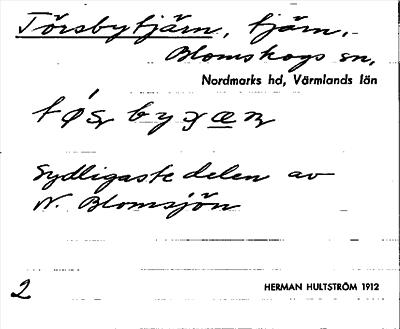 Törsbytjärn, tjärn,
Blomskogs sn,
Nordmarks hd, Värmlands län
Sydligaste delen av
N. Blomsjön
2
HERMAN HULTSTRÖM 1912